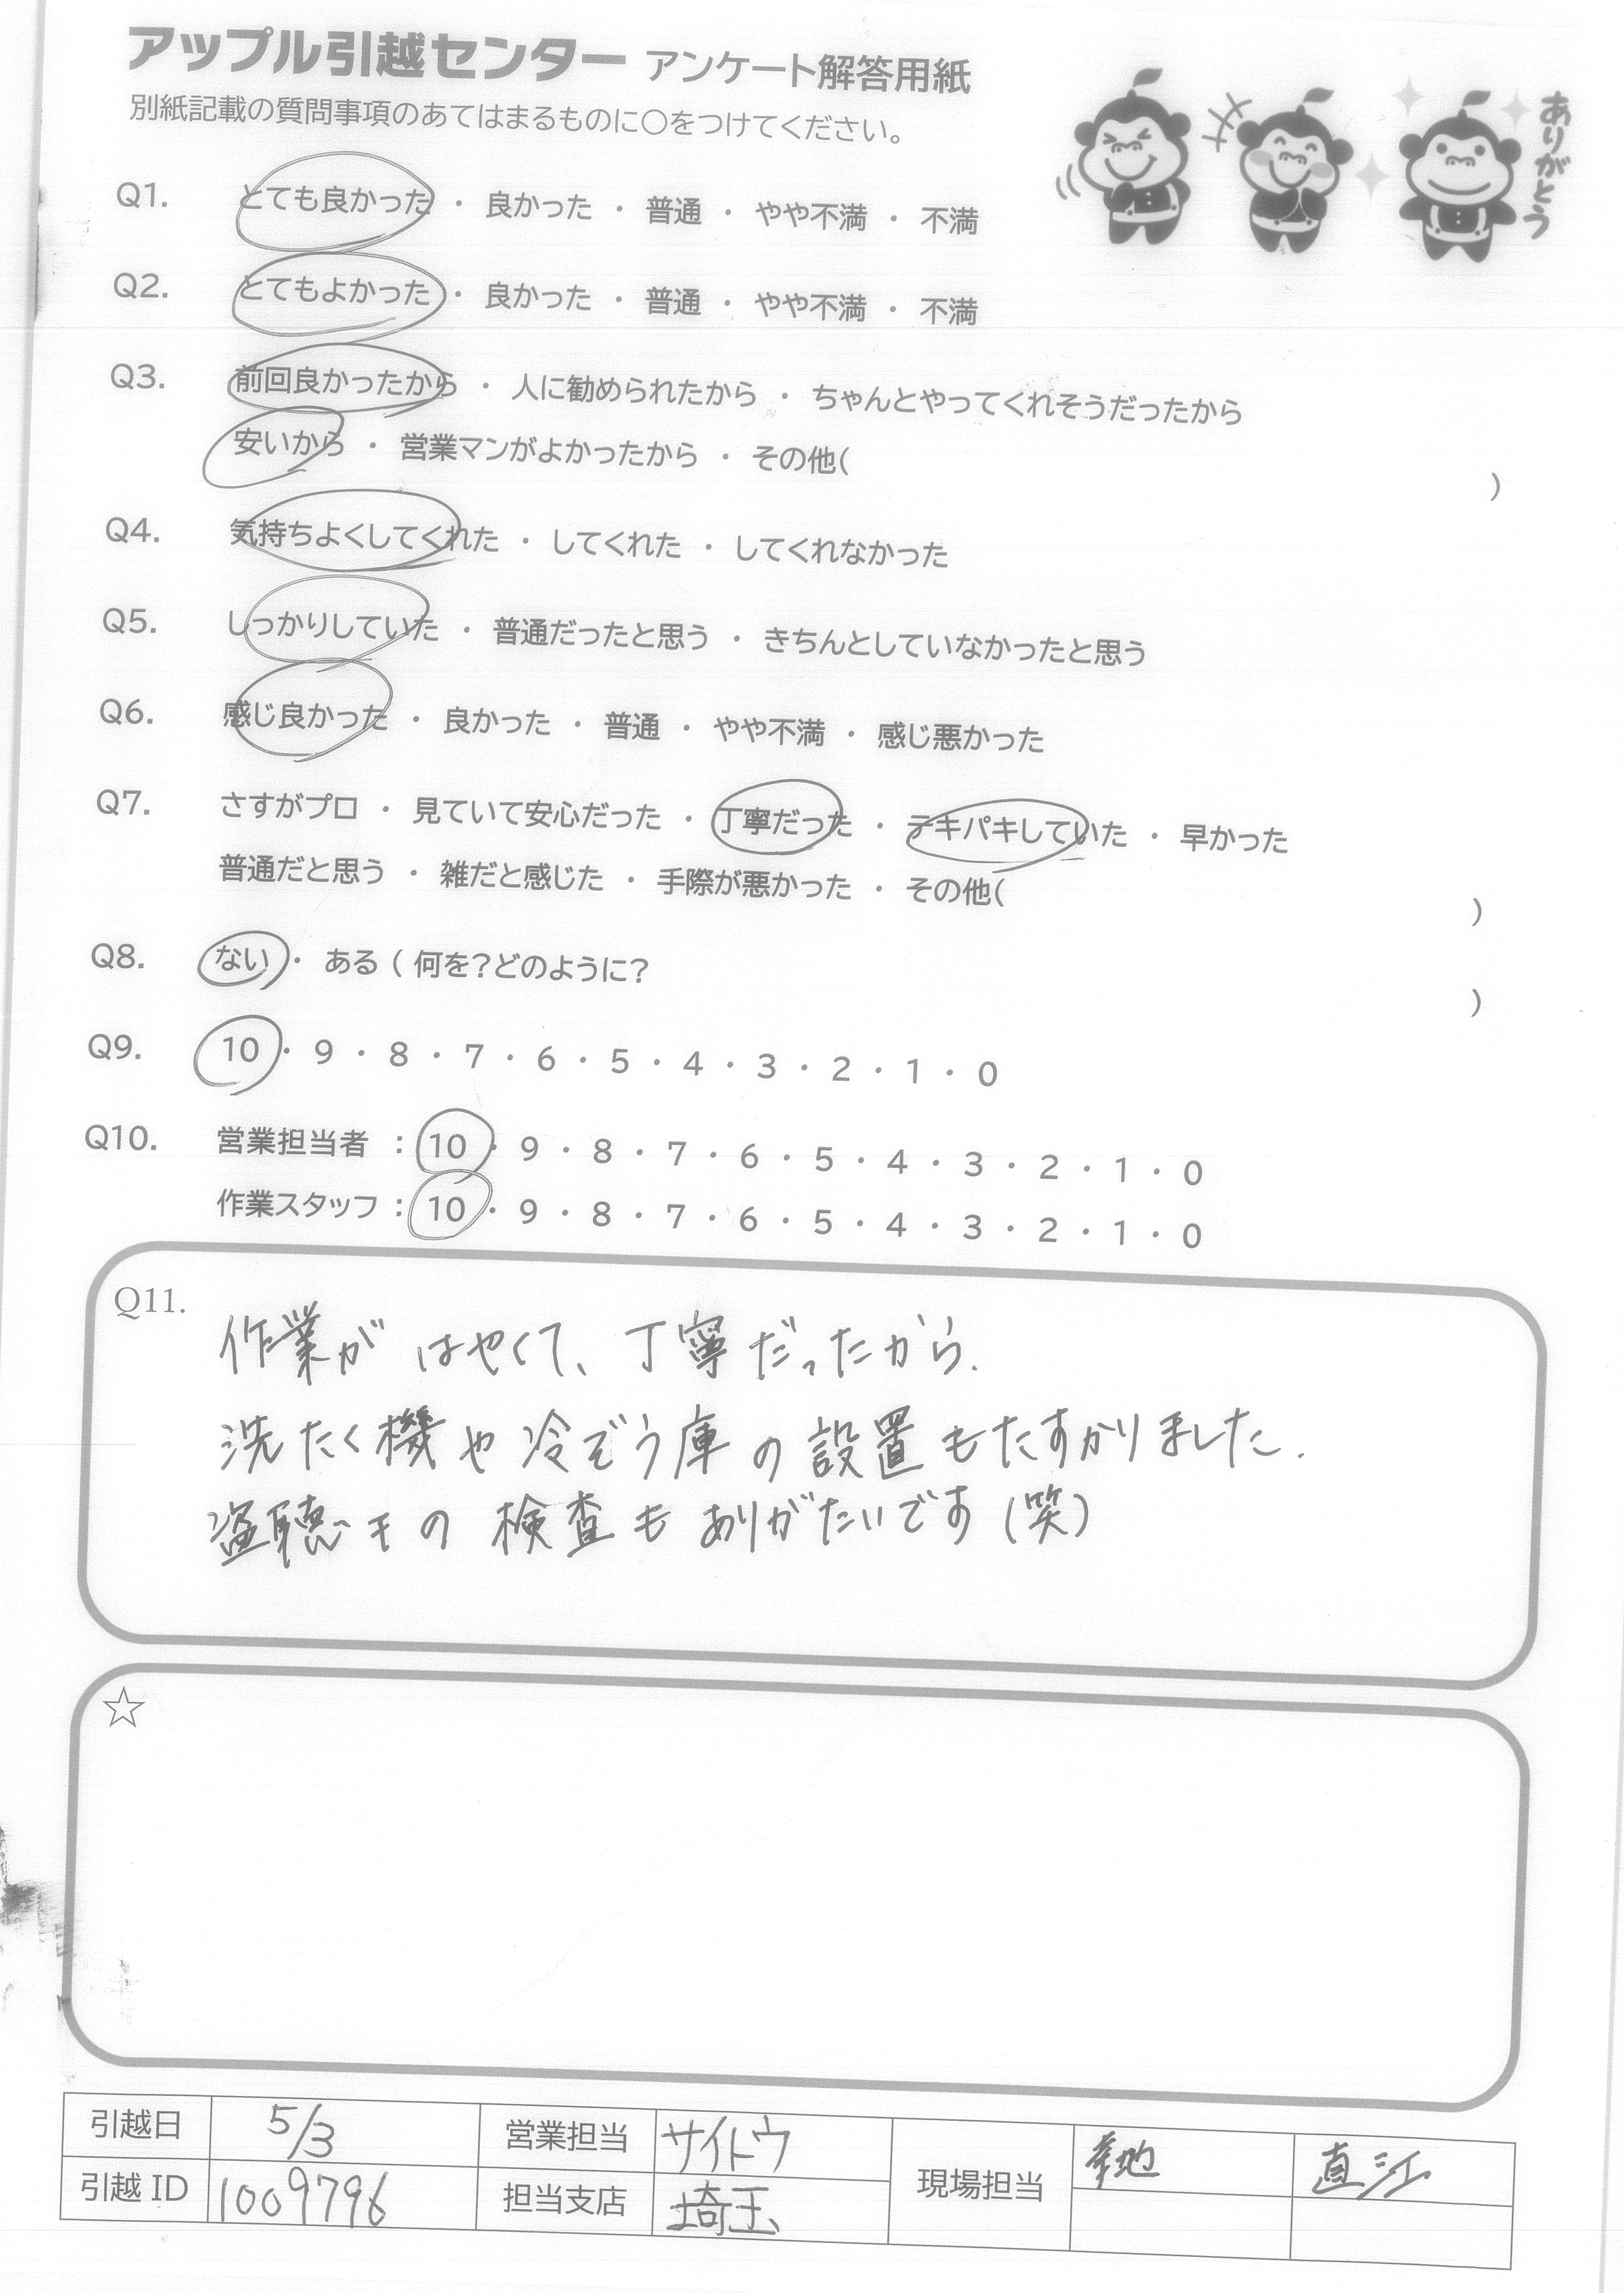 アップル引越センター アンケート解答用紙
別紙記載の質問事項のあてはまるものに○をつけてください。
ありがとう
Q1. とても良かった ・ 良かった ・ 普通 ・ やや不満 ・ 不満
Q2. とてもよかった ・ 良かった ・ 普通 ・ やや不満 ・ 不満
Q3. 前回良かったから ・ 人に勧められたから ・ ちゃんとやってくれそうだったから
安いから ・ 営業マンがよかったから ・ その他( )
Q4. 気持ちよくしてくれた ・ してくれた ・ してくれなかった
Q5. しっかりしていた ・ 普通だったと思う ・ きちんとしていなかったと思う
Q6. 感じ良かった ・ 良かった ・ 普通 ・ やや不満 ・ 感じ悪かった
Q7. さすがプロ ・ 見ていて安心だった ・ 丁寧だった ・ テキパキしていた ・ 早かった
普通だと思う ・ 雑だと感じた ・ 手際が悪かった ・ その他( )
Q8. ない ・ ある ( 何を?どのように? )
Q9. 10 ・ 9 ・ 8 ・ 7 ・ 6 ・ 5 ・ 4 ・ 3 ・ 2 ・ 1 ・ 0
Q10. 営業担当者 : 10 ・ 9 ・ 8 ・ 7 ・ 6 ・ 5 ・ 4 ・ 3 ・ 2 ・ 1 ・ 0
作業スタッフ : 10 ・ 9 ・ 8 ・ 7 ・ 6 ・ 5 ・ 4 ・ 3 ・ 2 ・ 1 ・ 0
Q11. 作業が はやくて、丁寧だったから.
洗たく機や冷ぞう庫の設置もたすかりました.
盗聴キの検査もありがたいです(笑)
☆
引越日 5/3 営業担当 サイトウ 現場担当 直江
引越 ID 1009796 担当支店 埼玉